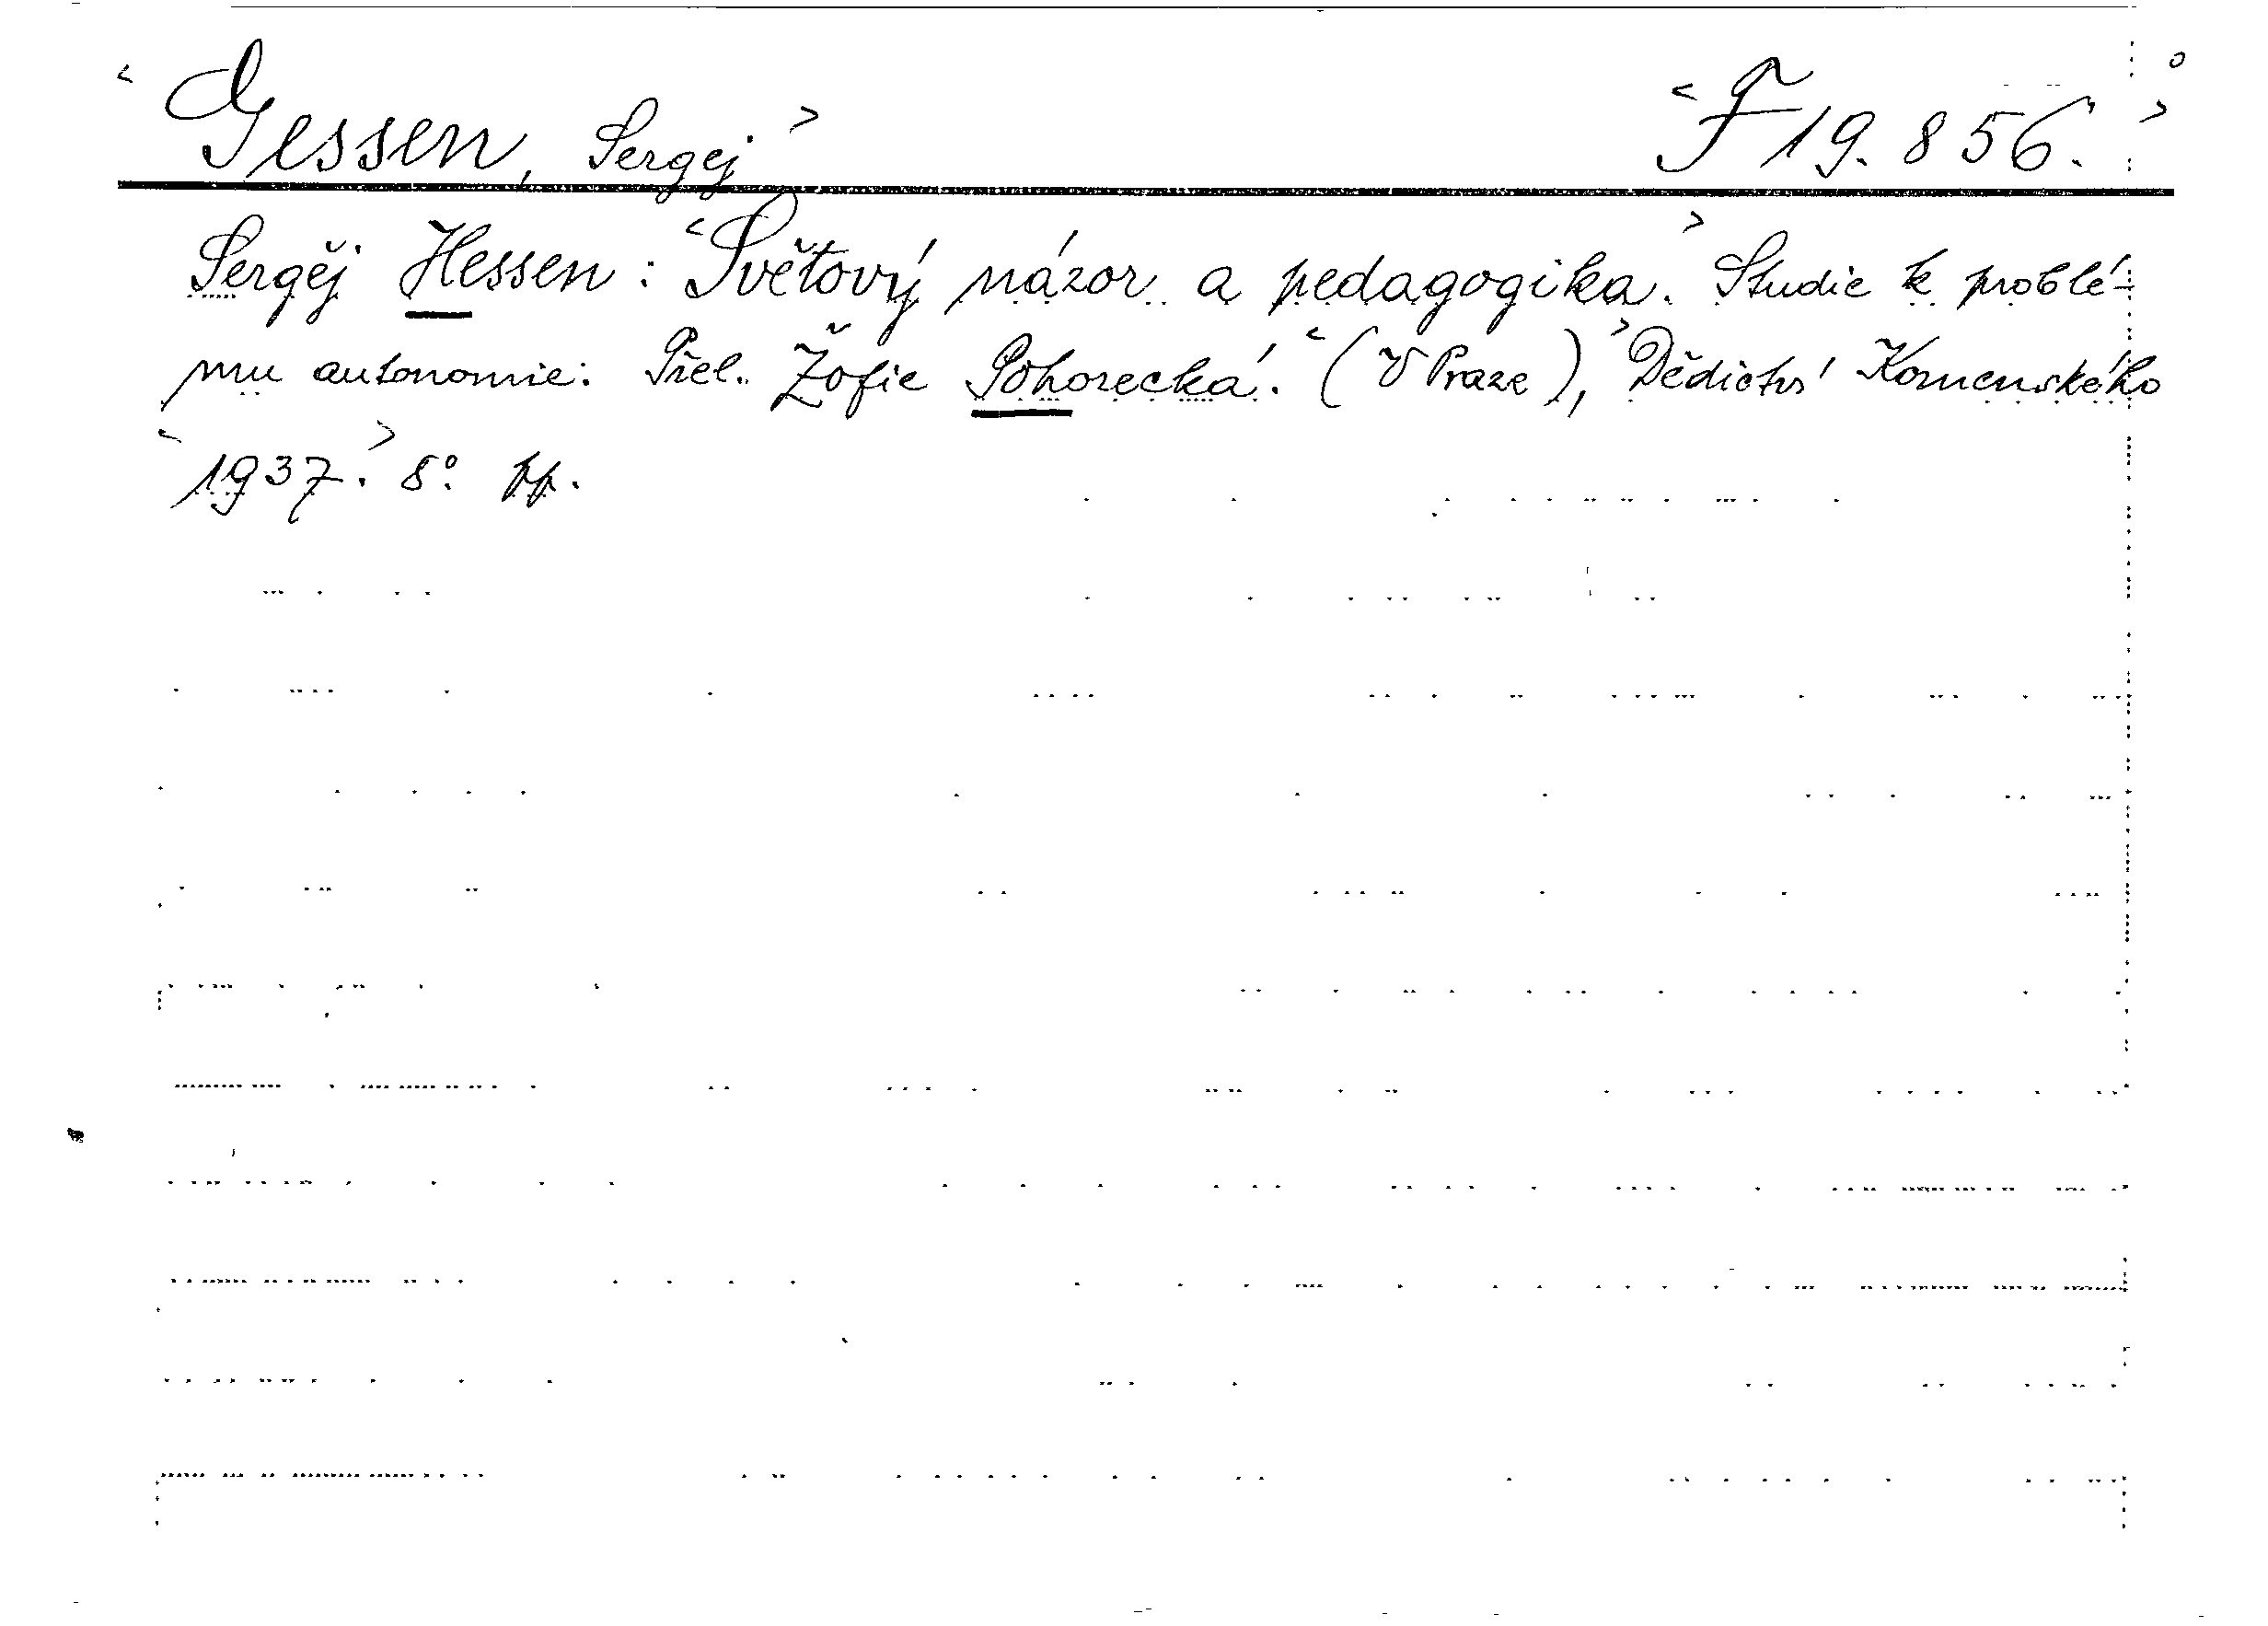 <Gessen, Sergej> <F 19.856.>
Sergěj Hessen: <Světový názor a pedagogika.> Studie k problé-
mu autonomie. Přel. Žofie Pohorecká. <(V Praze),> Dědictví Komenského
<1937.> 8°. pp.